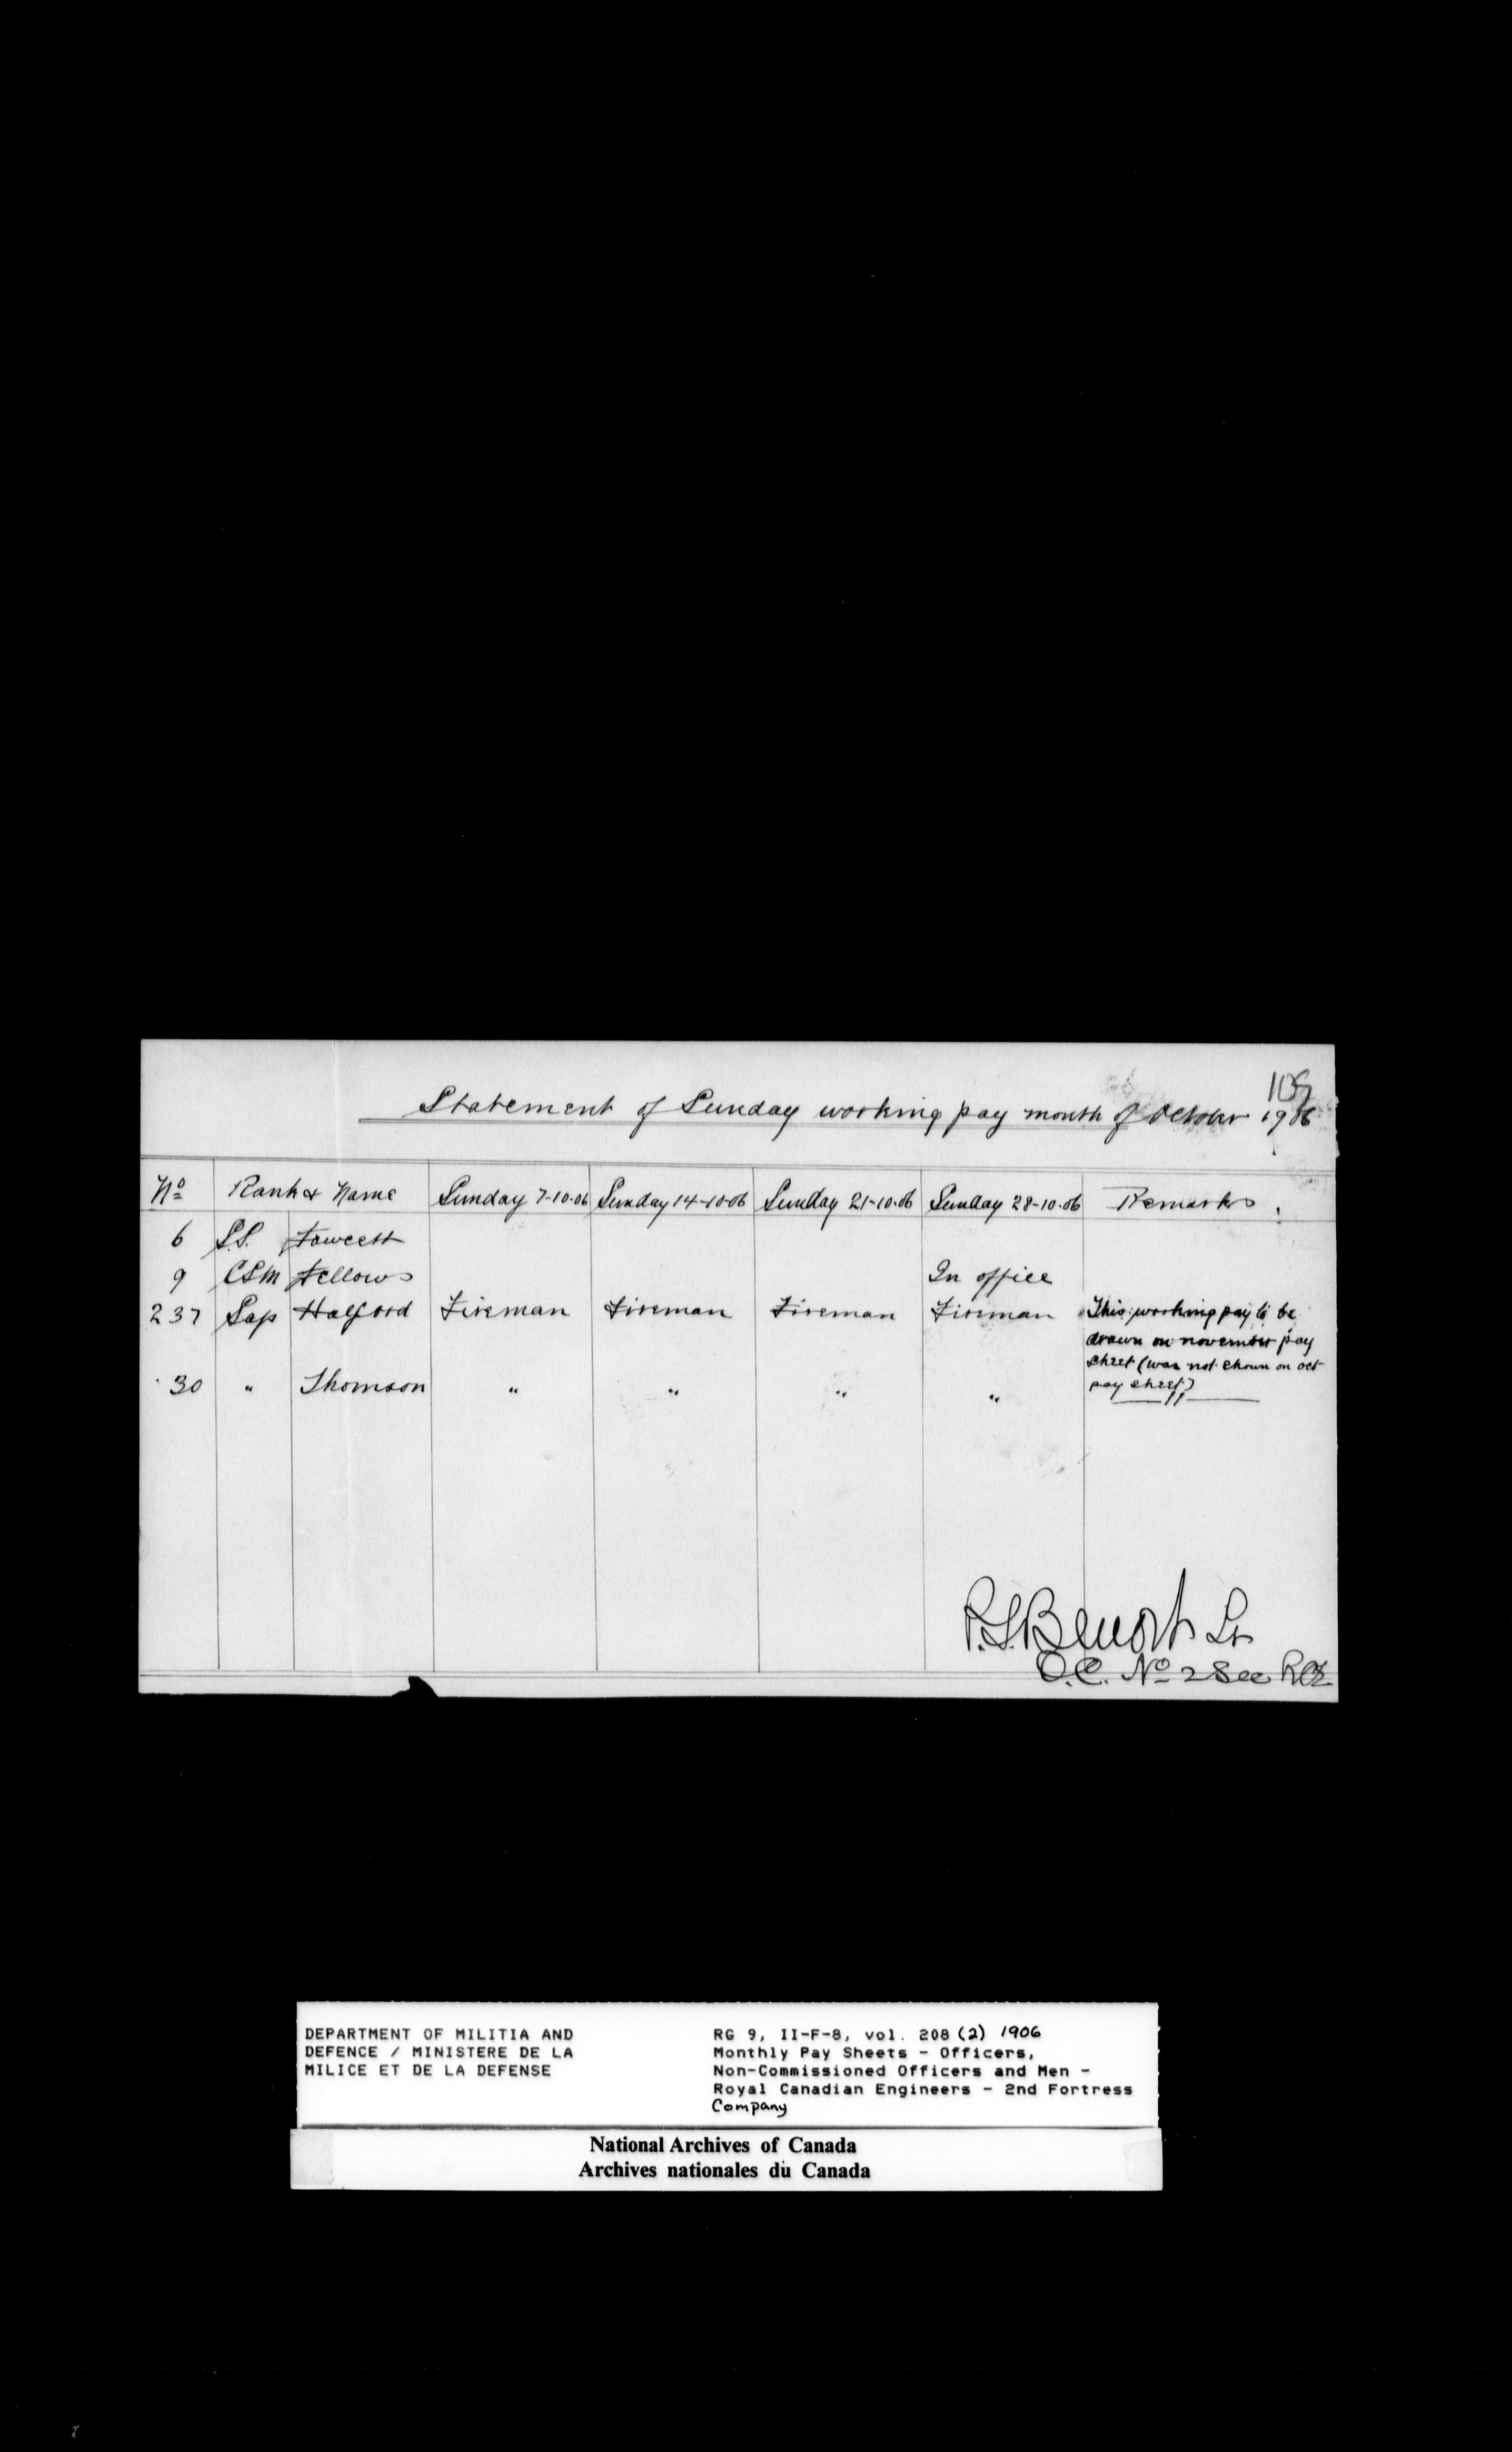 109
Statement of Sunday working pay month of October 1906
No Rank & Name Sunday 7-10-06 Sunday 14-10-06 Sunday 21-10-06 Sunday 28-10-06 Remarks.
6 S.S. Fawcett
9 CSM Fellows In office
237 Sap Halford Fireman Fireman Fireman Fireman This working pay to be
drawn on november pay
sheet (was not shown on oct
30 " Thomson " " " " pay sheet)
P.S. Benoit Lt
O.C. No 2 Sec RCE
DEPARTMENT OF MILITIA AND
DEFENCE / MINISTERE DE LA
MILICE ET DE LA DEFENSE
RG 9, II-F-8, vol. 208 (2) 1906
Monthly Pay Sheets - Officers,
Non-Commissioned Officers and Men -
Royal Canadian Engineers - 2nd Fortress
Company
National Archives of Canada
Archives nationales du Canada